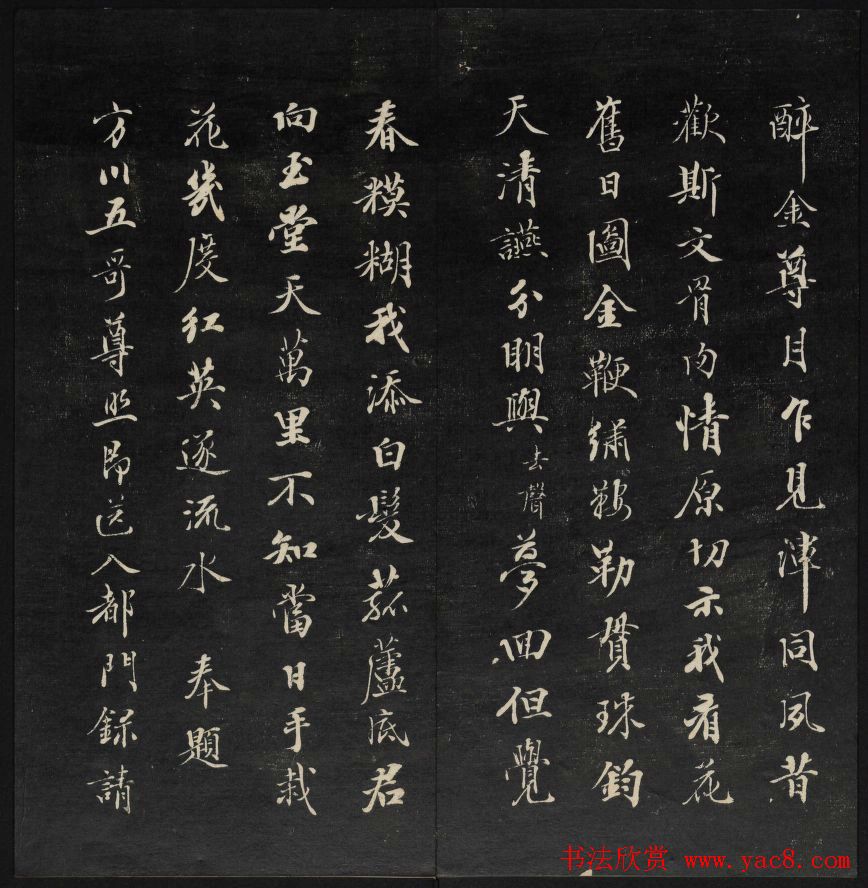 醉金尊月乍見渾同夙昔
歡斯文骨肉情原切示我看花
舊日圖金鞭繡鞍勒貫珠鈞
天清讌分明與去聲夢回但覺
春糢糊我添白髮菰蘆底君
向玉堂天萬里不知當日手栽
花幾度紅英逐流水 奉題
方川五哥尊照即送入都門錄請
书法欣赏 www.yac8.com